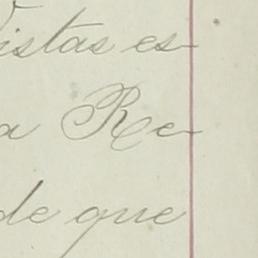 Vistas es-
a Re-
de que